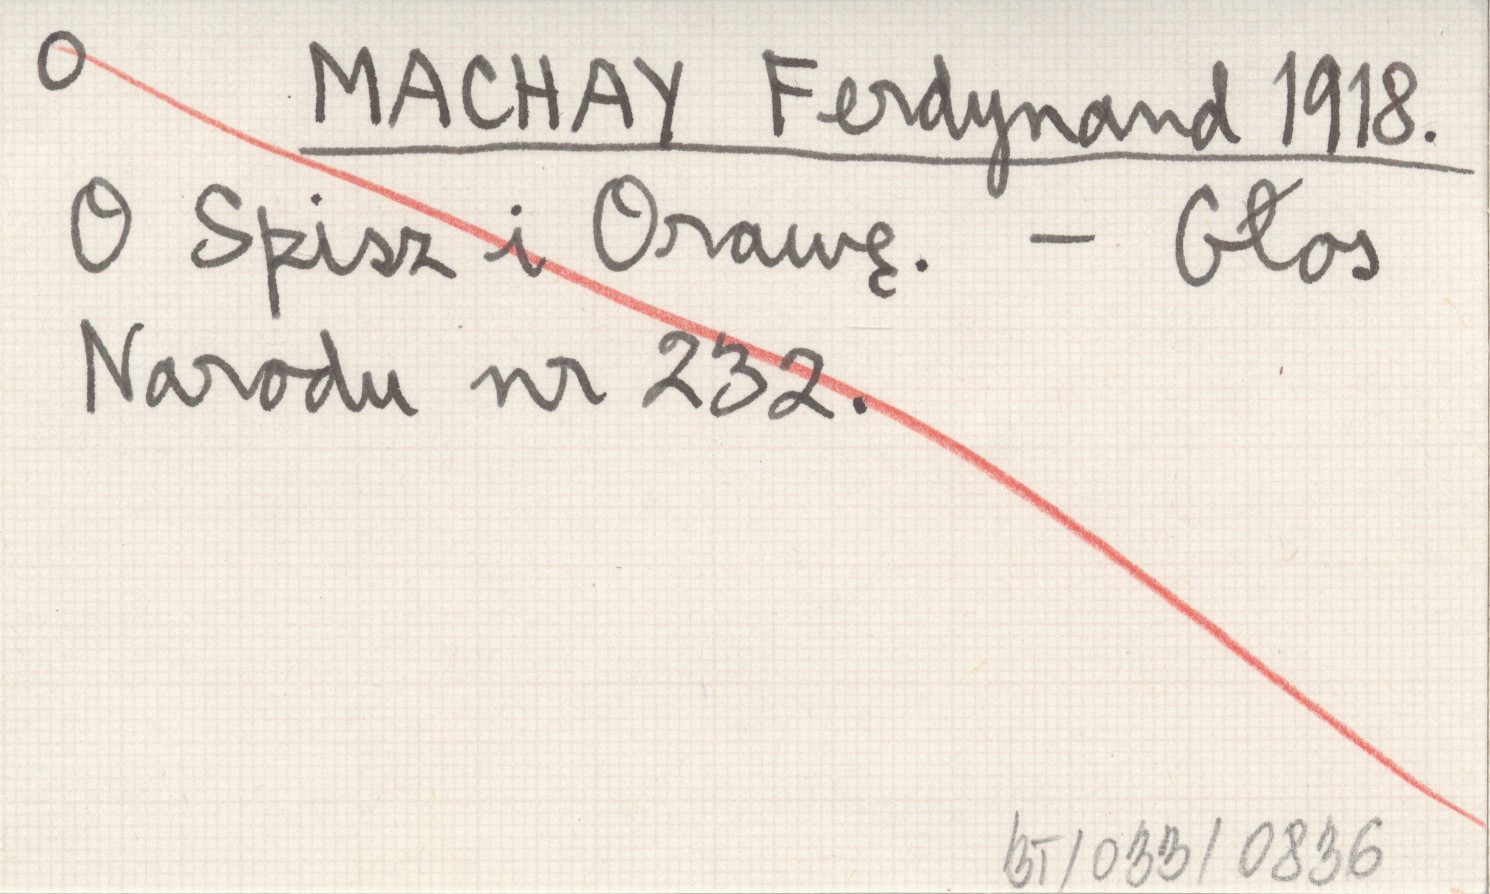 O MACHAY Ferdynand 1918.
O Spisz i Orawę. – Głos
Narodu nr 232.
BT/033/0836